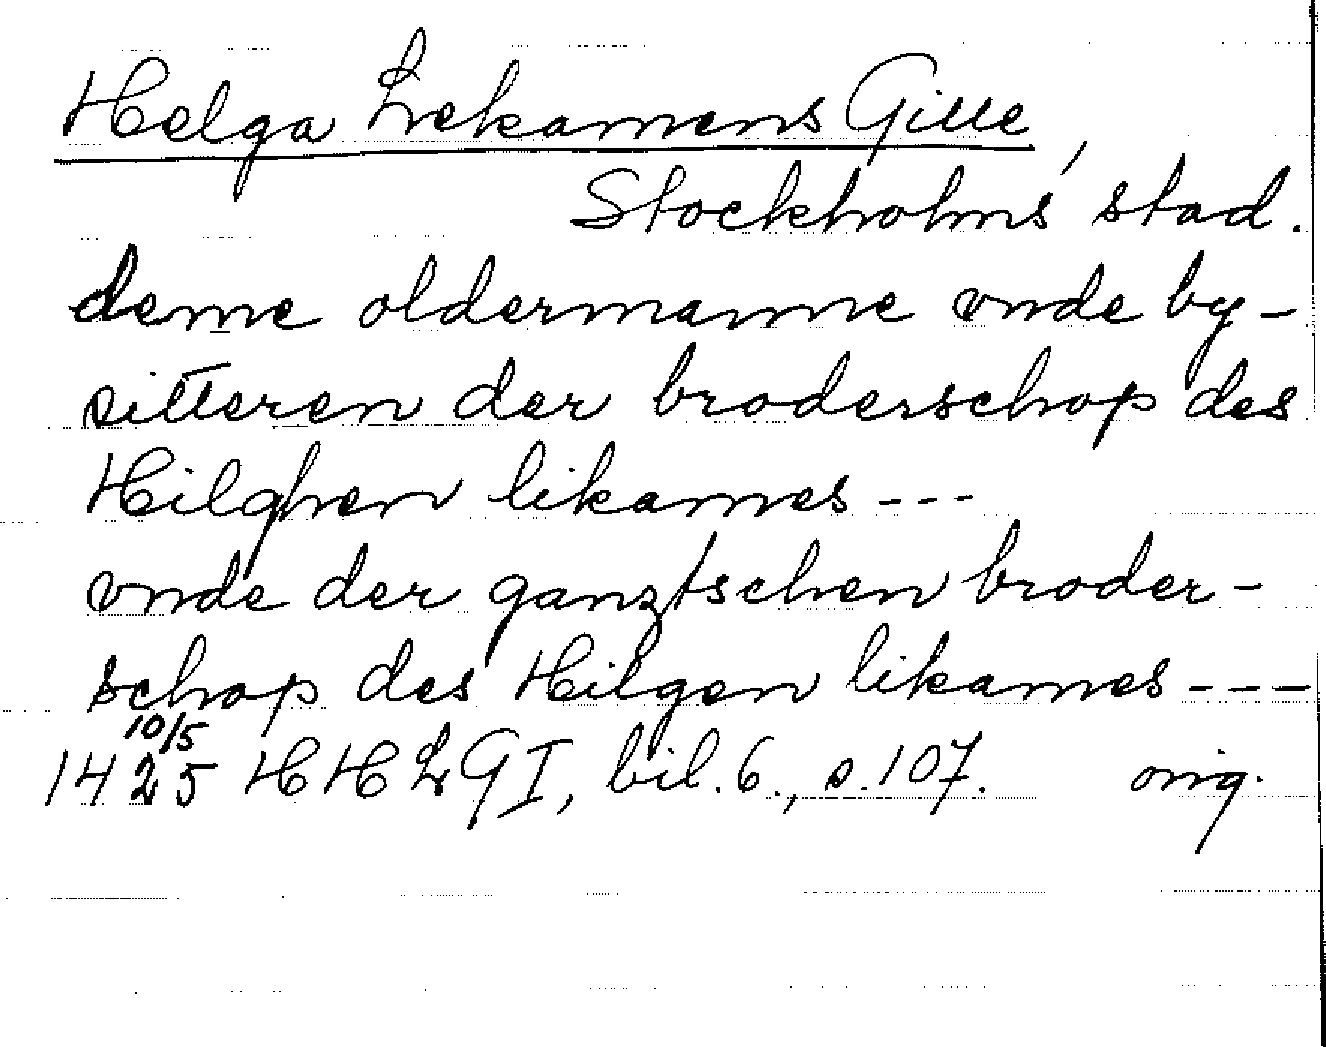 Helga Lekamens Gille,
Stockholms stad.
deme oldermanne vnde by-
sitteren der broderschop des
Hilghen likames ---
vnde der ganztschen broder-
schop des Hilgen likames ---
10/5
1425 HHLGI, bil. 6., s. 107. orig.